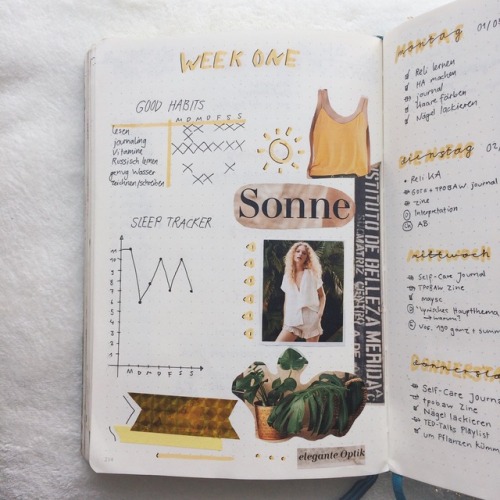 WEEK ONE
GOOD HABITS
M D M D F S S
lesen
journaling
Vitamine
Russisch lernen
genug Wasser
zeichnen/schreiben
SLEEP TRACKER
11
10
9
8
7
6
5
4
3
2
1
M D M D F S S
Sonne
INSTITUTO DE BELLEZA MERIDA
MATRIZ CENTRO
elegante Optik
Montag
Reli lernen
HA machen
journal
Haare färben
Nägel lackieren
Dienstag
Reli KA
GOTO + TPOBAW journal
Zine
Interpretation
AB
Mittwoch
Self-Care Journal
TPOBAW Zine
mayse
Lyrisches Hauptthema,
→ warum?
Donnerstag
Self-Care Journ
tpobaw Zine
Nägel lackieren
TED-Talks Playlist
um Pflanzen kümm